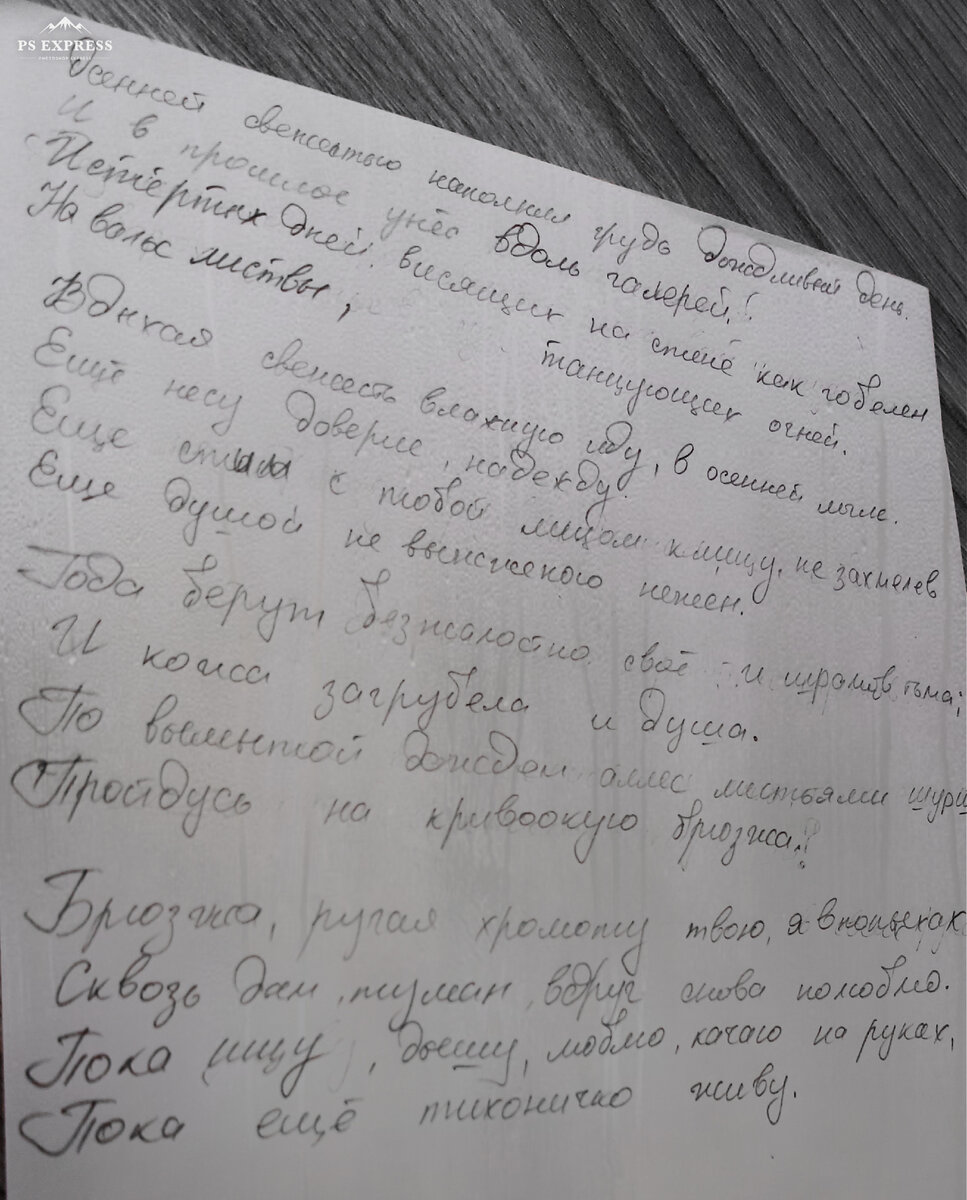 PS EXPRESS
PHOTOSHOP EXPRESS
Осенней свежестью наполнил грудь дождливый день.
И в прошлое унёс вдоль галерей,!
Истёртых дней висящих на стене как гобелен
На вальс листвы, танцующих огней.
Вдыхая свежесть влажную иду, в осенней мгле.
Ещё несу доверие, надежду.
Ещё с тобой лицом к лицу, не захмелев
Ещё душой не выжженого нежен.
Года берут безжалостно своё и шрамов тьма;
И кожа загрубела и душа.
По вымытой дождём аллее листьями шурш
Пройдусь на кривоокую брюзжа.!
Брюзжа, ругая хромоту твою, я впопыхах
Сквозь дам, туман, вдруг снова полюблю.
Пока ищу, дышу, люблю, качаю на руках,
Пока ещё тихонично живу.